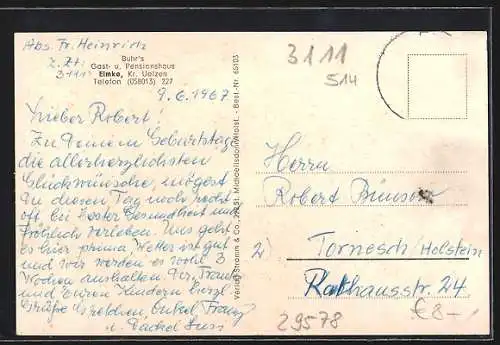 Abs. Fr. Heinrich
z. Zt.
3111
Buhr's
Gast- u. Pensionshaus
Eimke, Kr. Uelzen
Telefon (058013) 227
9.6.1967
Lieber Robert!
Zu Deinem Geburtstag
die allerherzlichsten
Glückwünsche, mögest
Du diesen Tag noch recht
oft bei bester Gesundheit und
Fröhlich verleben. Uns geht
es hier prima, Wetter ist gut
und wir werden es wohl 3
Wochen aushalten. Dir, Frau
und Euren Kindern herzl.
Grüße Gretchen, Onkel Franz
u. Dackel
Verlag Stramm & Co., St. Michaelisdonn/Holst. - Best.-Nr. 65103
3111
514
Herrn
Robert
2)
Tornesch/Holstein
Rathausstr. 24
29578
€8-